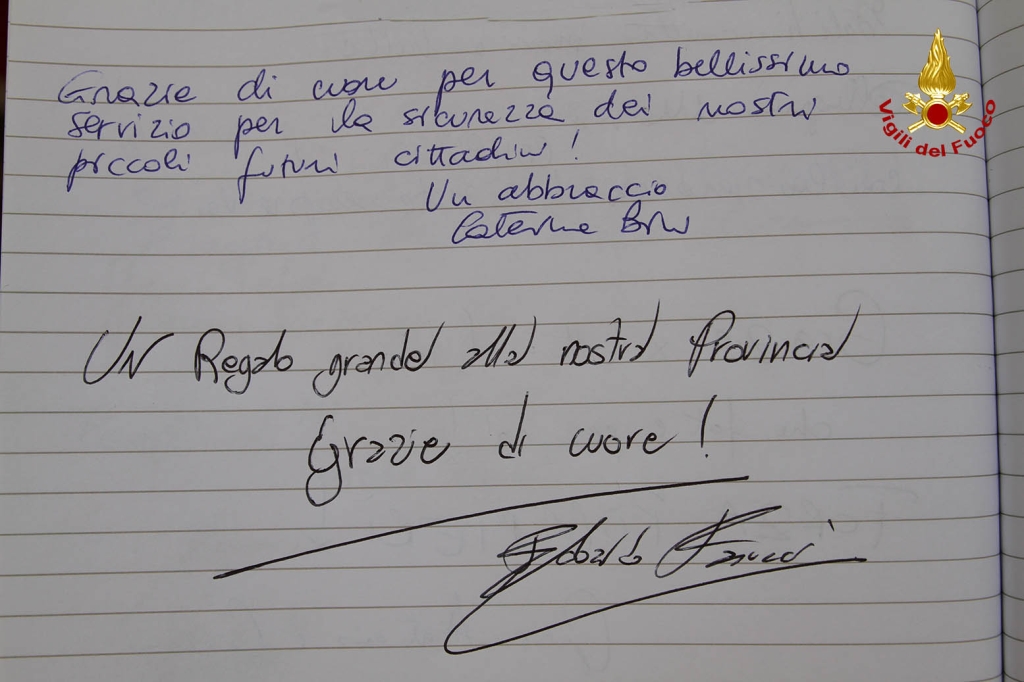 Grazie di cuore per questo bellissimo
servizio per la sicurezza dei nostri
piccoli futuri cittadini!
Un abbraccio
Caterina
Un Regalo grande alla nostra Provincia
Grazie di cuore!
Edoardo
Vigili del Fuoco